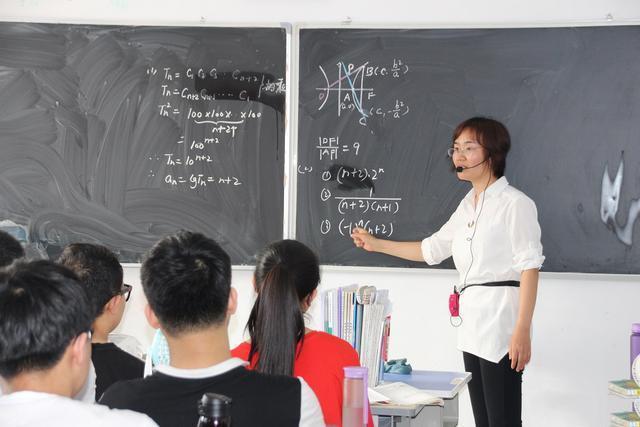 (1) Tn = C1 C2 C3 ··· Cn+2
Tn = Cn+2 Cn+1 ··· C1
Tn² = 100×100×···×100
n+2个
= 100^(n+2)
∴ Tn = 10^(n+2)
∴ an = lgTn = n+2
P
B(c, b²/a)
D A F
C (c, -b²/a)
|DF|/|AF| = 9
(2) ① (n+2)·2ⁿ
② 1/((n+2)(n+1))
③ (-1)ⁿ(n+2)